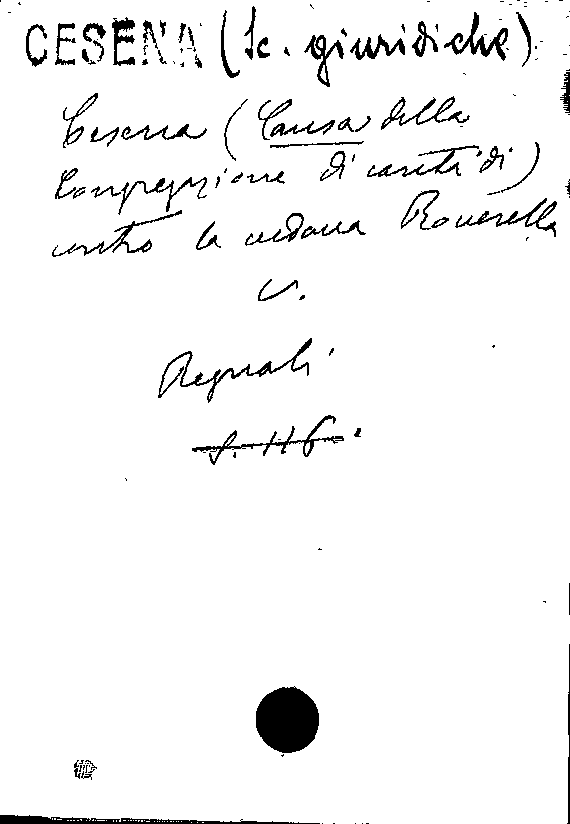 CESENA (Sc. giuridiche)
Cesena (Causa della
Congregazione di carità di)
contro la vedova Roverella
v.
Regnoli
S. 116.